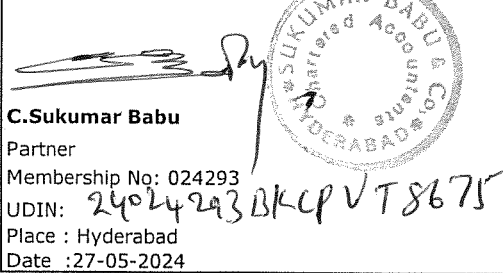 SUKUMAR BABU & Co.
Chartered Accountants
HYDERABAD
C.Sukumar Babu
Partner
Membership No: 024293
UDIN: 24024293BKCPVT8675
Place : Hyderabad
Date :27-05-2024